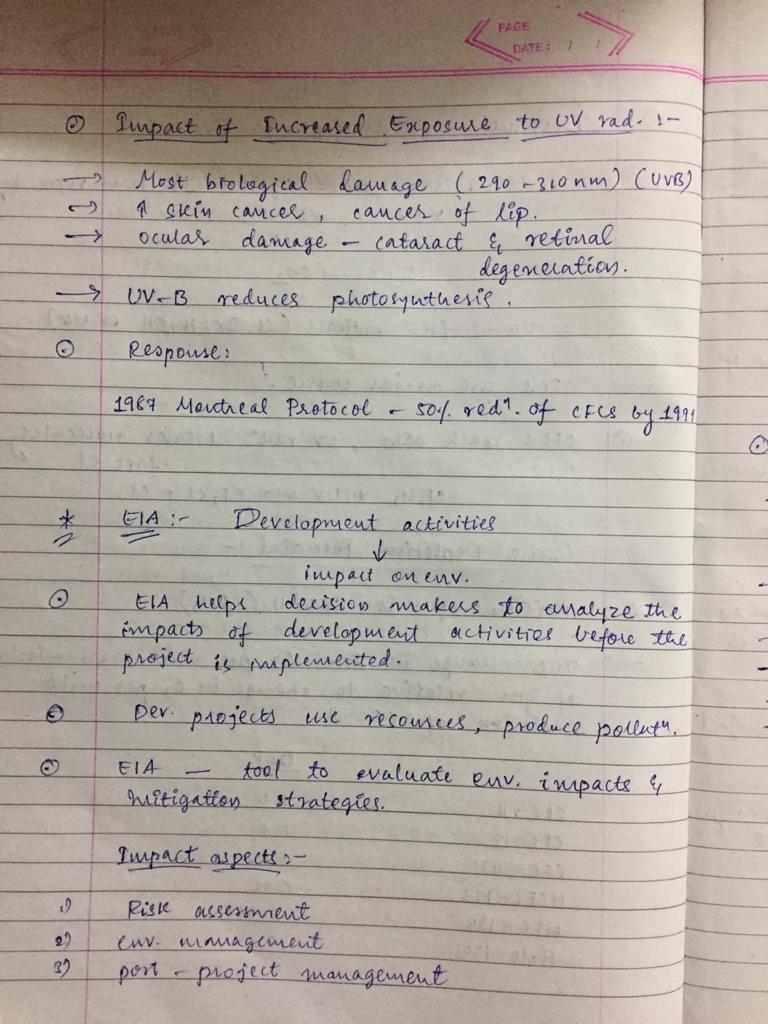 PAGE
DATE: / /
⊙ Impact of Increased Exposure to UV rad. :-
→ Most biological damage (290-310nm) (UVB)
→ ↑ skin cancer, cancer of lip.
→ ocular damage - cataract & retinal
degeneration.
→ UV-B reduces photosynthesis.
⊙ Response:
1987 Montreal Protocol - 50% redⁿ. of CFCS by
* EIA :- Development activities
↓
impact on env.
⊙ EIA helps decision makers to analyze the
impacts of development activities before the
project is implemented.
⊙ Dev. projects use resources, produce pollutⁿ.
⊙ EIA — tool to evaluate env. impacts &
mitigation strategies.
Impact aspects :-
1) Risk assessment
2) env. management
3) port - project management